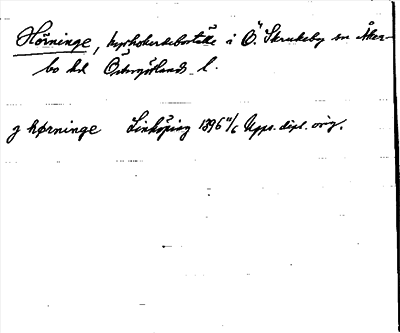 Hörninge, kyrkoherdeboställe i Ö. Skrukeby sn Åker-
bo hd Östergötlands l.
j hørninge Linköping 1396 11/6 Upps. dipl. orig.